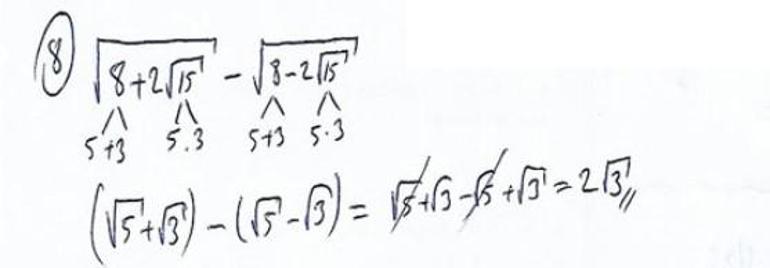 8) √(8+2√15) - √(8-2√15)
5+3 5.3 5+3 5.3
(√5+√3) - (√5-√3) = √5+√3-√5+√3 = 2√3//